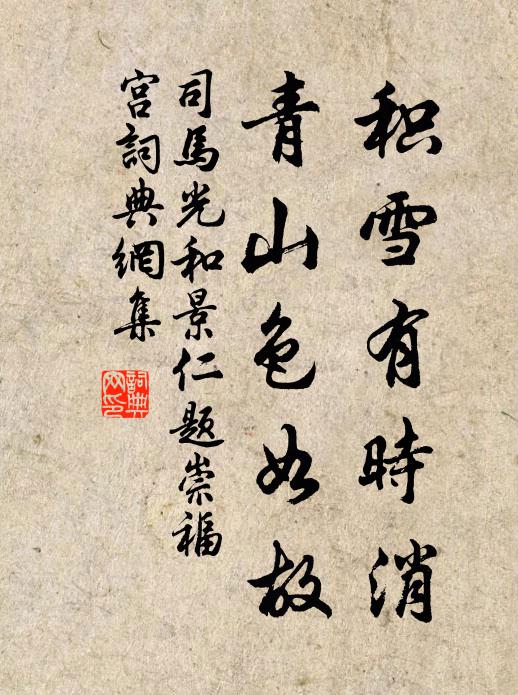 积雪有時消
青山色如故
司馬光和景仁題崇福
宮詞典網集
詞典
网印